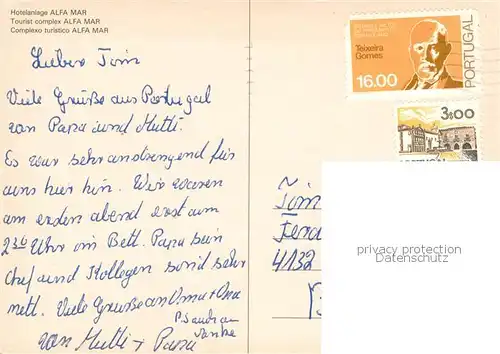 Hotelanlage ALFA MAR
Tourist complex ALFA MAR
Complexo turístico ALFA MAR
Lieber Tim
Viele Grüße aus Portugal
von Papa und Mutti.
Es war sehr anstrengend für
uns hier hin. Wir waren
am ersten abend erst um
2 30 Uhr im Bett. Papa sein
Chef und Kollegen sind sehr
nett. Viele Grüße an Oma + Opa
von Mutti + Papa
Teixeira
Gomes
16.00
PORTUGAL
3$00
PORTUGAL
Tim
4132
privacy protection
Datenschutz